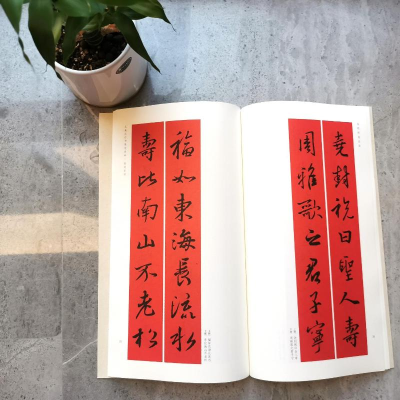 堯封祝曰聖人壽
周雅歌之君子寧
福如東海長流水
壽比南山不老松